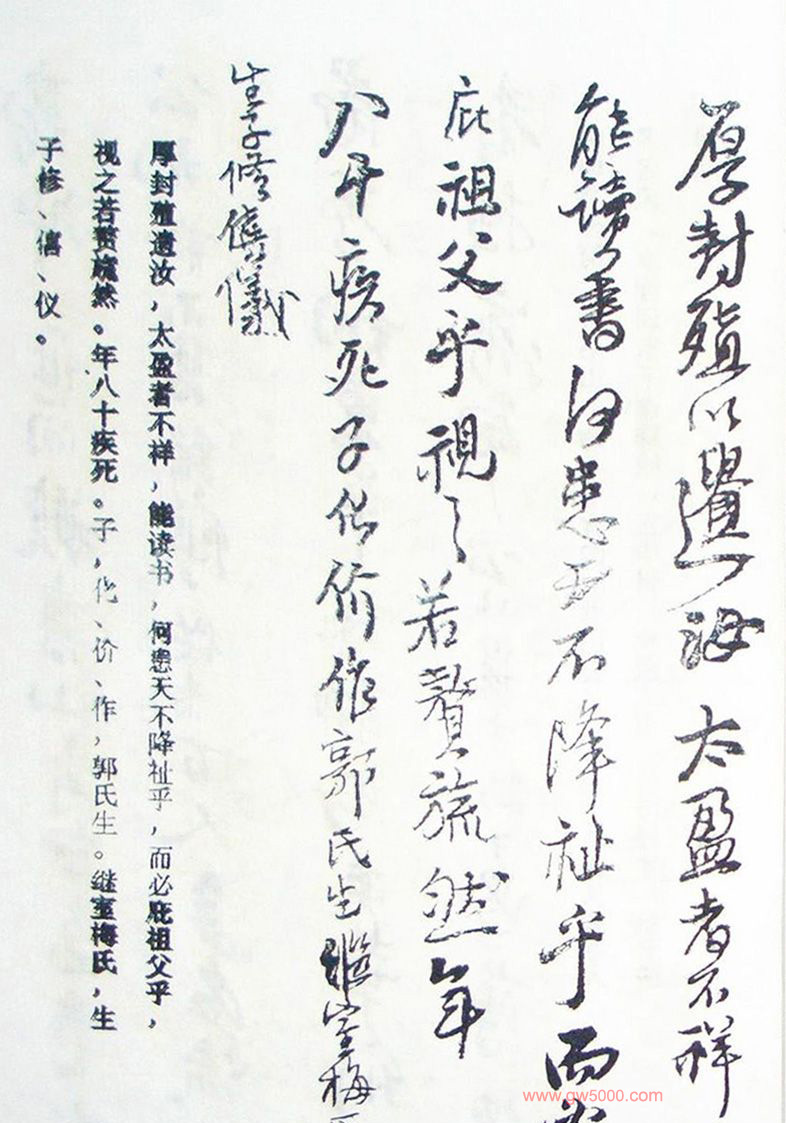 厚封殖以遗汝太盈者不祥
能读书何患天不降祉乎而必
庇祖父乎視之若贅疏然年
八十疾死子化价作郭氏生継室梅氏
生子修僖儀
厚封殖遗汝 太盈者不祥，能读书，何患天不降祉乎，而必庇祖父乎，
视之若赘疏然。年八十疾死。子，化、价、作，郭氏生。继室梅氏，生
子修、僖、仪。
www.gw5000.com